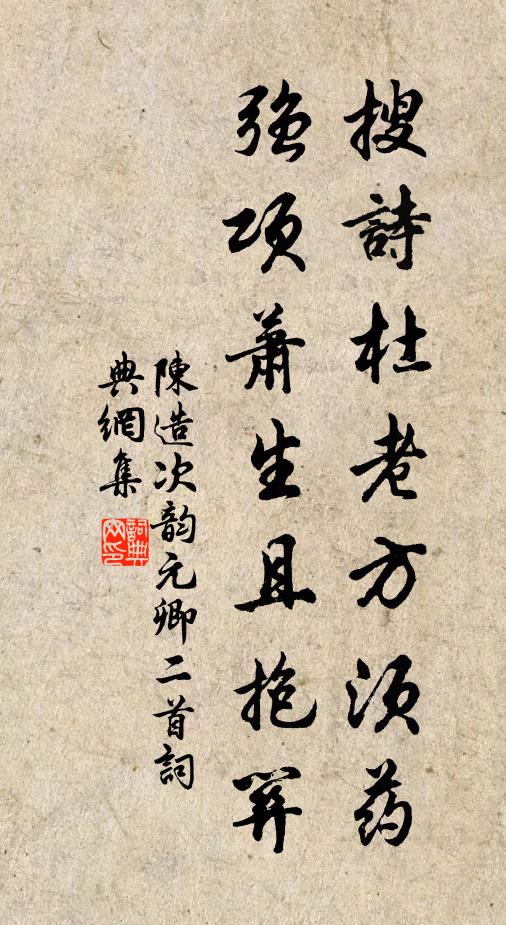 搜詩杜老方須药
強項蕭生且抱關
陳造次韵元卿二首詞
典網集
詞典網印